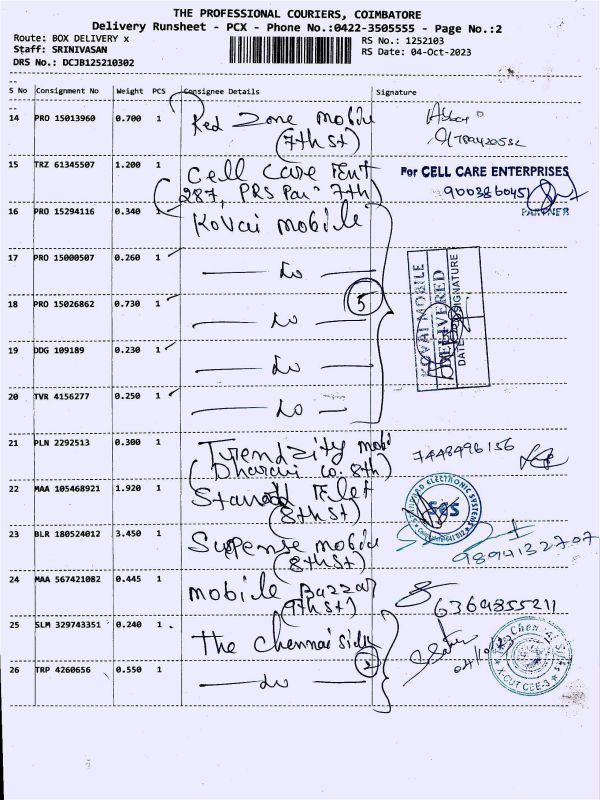 THE PROFESSIONAL COURIERS, COIMBATORE
Delivery Runsheet - PCX - Phone No.:0422-3505555 - Page No.:2
Route: BOX DELIVERY x
Staff: SRINIVASAN
DRS No.: DCJB125210302
RS No.: 1252103
RS Date: 04-Oct-2023
S No Consignment No Weight PCS Consignee Details Signature
14 PRO 15013960 0.700 1 Red Zone mobile
(7th St)
15 TRZ 61345507 1.200 1 Cell Care
287, PRS 7th) For CELL CARE ENTERPRISES
PARTNER
16 PRO 15294116 0.340 1 Kovai mobile
17 PRO 15000507 0.260 1 — do —
18 PRO 15026862 0.730 1 — do —
5
19 DDG 109189 0.230 1 — do —
20 TVR 4156277 0.250 1 — do —
KOVAI MOBILE
DELIVERED
DATE SIGNATURE
21 PLN 2292513 0.300 1 Trendzity mobi 7448496156
8th)
22 MAA 105468921 1.920 1
(8th St)
SES
23 BLR 180524012 3.450 1 Suspense mobile
(8th St) 9894132707
24 MAA 567421082 0.445 1 mobile Bazzar
(9th St) 6369855211
25 SLM 329743351 0.240 1 The Chennai
2
26 TRP 4260656 0.550 1 — do —